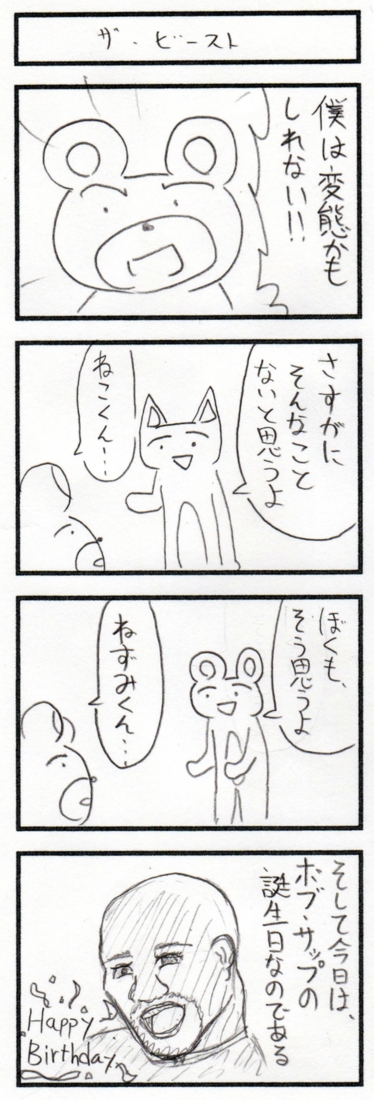 ザ・ビースト
僕は変態かも
しれない!!
さすがに
そんなこと
ないと思うよ
ねこくん…
ぼくも、
そう思うよ
ねずみくん…
そして今日は、
ボブ・サップの
誕生日なのである
Happy
Birthday